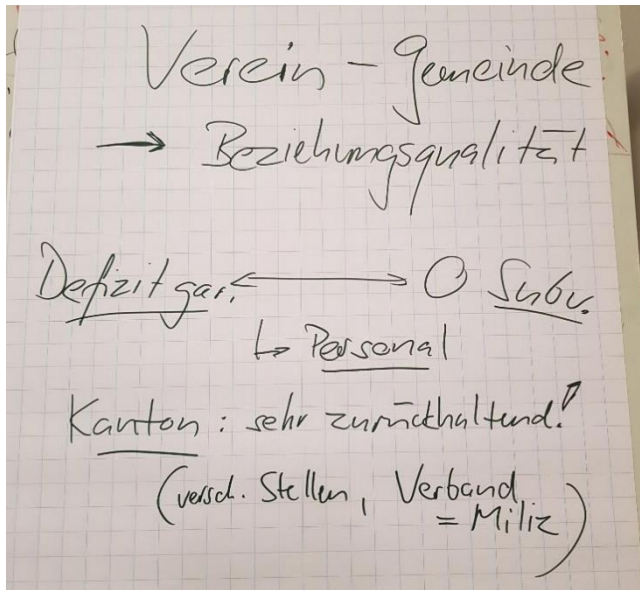 Verein - Gemeinde
→ Beziehungsqualität
Defizitgar. ↔ O Subv.
↳ Personal
Kanton : sehr zurückhaltend!
(versch. Stellen, Verband
= Miliz)